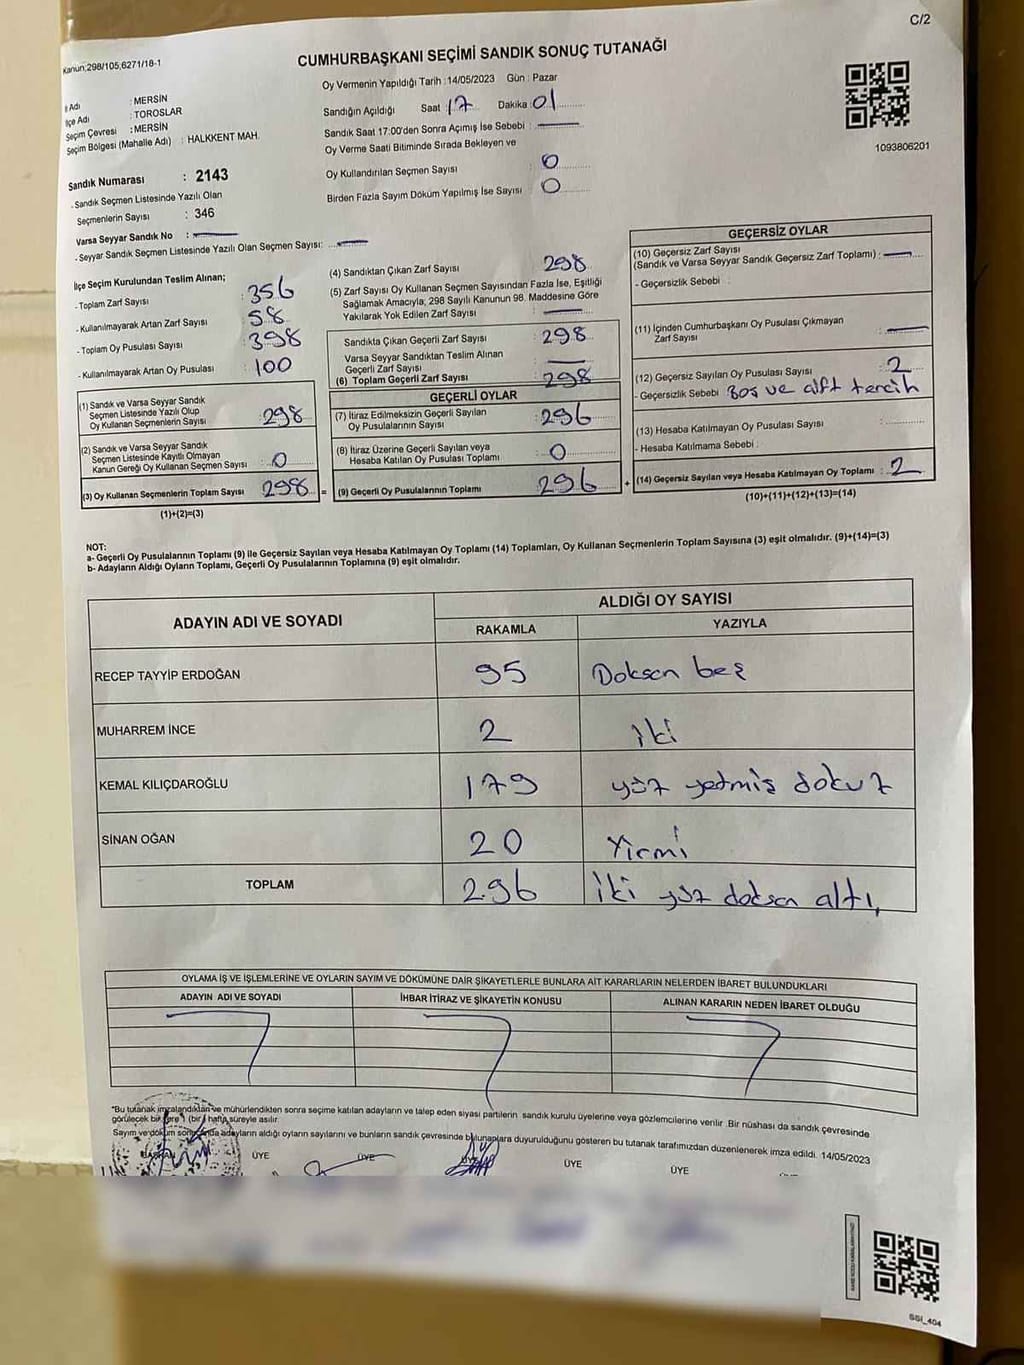 C/2
Kanun:298/105,6271/18-1
CUMHURBAŞKANI SEÇİMİ SANDIK SONUÇ TUTANAĞI
İl Adı : MERSİN
İlçe Adı : TOROSLAR
Seçim Çevresi : MERSİN
Seçim Bölgesi (Mahalle Adı) : HALKKENT MAH.
Sandık Numarası : 2143
- Sandık Seçmen Listesinde Yazılı Olan
Seçmenlerin Sayısı : 346
Varsa Seyyar Sandık No :
- Seyyar Sandık Seçmen Listesinde Yazılı Olan Seçmen Sayısı:
Oy Vermenin Yapıldığı Tarih : 14/05/2023 Gün : Pazar
Sandığın Açıldığı Saat : 17 Dakika : 01
Sandık Saat 17:00'den Sonra Açımış İse Sebebi :
Oy Verme Saati Bitiminde Sırada Bekleyen ve
Oy Kullandırılan Seçmen Sayısı : 0
Birden Fazla Sayım Döküm Yapılmış İse Sayısı : 0
1093806201
İlçe Seçim Kurulundan Teslim Alınan;
- Toplam Zarf Sayısı : 356
- Kullanılmayarak Artan Zarf Sayısı : 58
- Toplam Oy Pusulası Sayısı : 398
- Kullanılmayarak Artan Oy Pusulası : 100
(1) Sandık ve Varsa Seyyar Sandık
Seçmen Listesinde Yazılı Olup
Oy Kullanan Seçmenlerin Sayısı : 298
(2) Sandık ve Varsa Seyyar Sandık
Seçmen Listesinde Kayıtlı Olmayan
Kanun Gereği Oy Kullanan Seçmen Sayısı : 0
(3) Oy Kullanan Seçmenlerin Toplam Sayısı 298 =
(1)+(2)=(3)
(4) Sandıktan Çıkan Zarf Sayısı : 298
(5) Zarf Sayısı Oy Kullanan Seçmen Sayısından Fazla İse, Eşitliği
Sağlamak Amacıyla; 298 Sayılı Kanunun 98. Maddesine Göre
Yakılarak Yok Edilen Zarf Sayısı :
Sandıkta Çıkan Geçerli Zarf Sayısı : 298
Varsa Seyyar Sandıktan Teslim Alınan
Geçerli Zarf Sayısı :
(6) Toplam Geçerli Zarf Sayısı : 298
GEÇERLİ OYLAR
(7) İtiraz Edilmeksizin Geçerli Sayılan
Oy Pusulalarının Sayısı : 296
(8) İtiraz Üzerine Geçerli Sayılan veya
Hesaba Katılan Oy Pusulası Toplamı : 0
(9) Geçerli Oy Pusulalarının Toplamı : 296 +
GEÇERSİZ OYLAR
(10) Geçersiz Zarf Sayısı
(Sandık ve Varsa Seyyar Sandık Geçersiz Zarf Toplamı) :
- Geçersizlik Sebebi :
(11) İçinden Cumhurbaşkanı Oy Pusulası Çıkmayan
Zarf Sayısı :
(12) Geçersiz Sayılan Oy Pusulası Sayısı : 2
- Geçersizlik Sebebi : Boş ve çift tercih
(13) Hesaba Katılmayan Oy Pusulası Sayısı :
- Hesaba Katılmama Sebebi :
(14) Geçersiz Sayılan veya Hesaba Katılmayan Oy Toplamı : 2
(10)+(11)+(12)+(13)=(14)
NOT:
a- Geçerli Oy Pusulalarının Toplamı (9) ile Geçersiz Sayılan veya Hesaba Katılmayan Oy Toplamı (14) Toplamları, Oy Kullanan Seçmenlerin Toplam Sayısına (3) eşit olmalıdır. (9)+(14)=(3)
b- Adayların Aldığı Oyların Toplamı, Geçerli Oy Pusulalarının Toplamına (9) eşit olmalıdır.
ADAYIN ADI VE SOYADI ALDIĞI OY SAYISI
RAKAMLA YAZIYLA
RECEP TAYYİP ERDOĞAN 95 Doksan beş
MUHARREM İNCE 2 iki
KEMAL KILIÇDAROĞLU 179 yüz yetmiş dokuz
SİNAN OĞAN 20 Yirmi
TOPLAM 296 iki yüz doksan altı,
OYLAMA İŞ VE İŞLEMLERİNE VE OYLARIN SAYIM VE DÖKÜMÜNE DAİR ŞİKAYETLERLE BUNLARA AİT KARARLARIN NELERDEN İBARET BULUNDUKLARI
ADAYIN ADI VE SOYADI İHBAR İTİRAZ VE ŞİKAYETİN KONUSU ALINAN KARARIN NEDEN İBARET OLDUĞU
"Bu tutanak imzalandıktan ve mühürlendikten sonra seçime katılan adayların ve talep eden siyasi partilerin sandık kurulu üyelerine veya gözlemcilerine verilir. Bir nüshası da sandık çevresinde
görülecek bir yere 1 (bir) hafta süreyle asılır.
Sayım ve döküm sonrasında adayların aldığı oyların sayılarını ve bunların sandık çevresinde bulunanlara duyurulduğunu gösteren bu tutanak tarafımızdan düzenlenerek imza edildi. 14/05/2023
BAŞKAN ÜYE ÜYE ÜYE ÜYE ÜYE
SSI_404